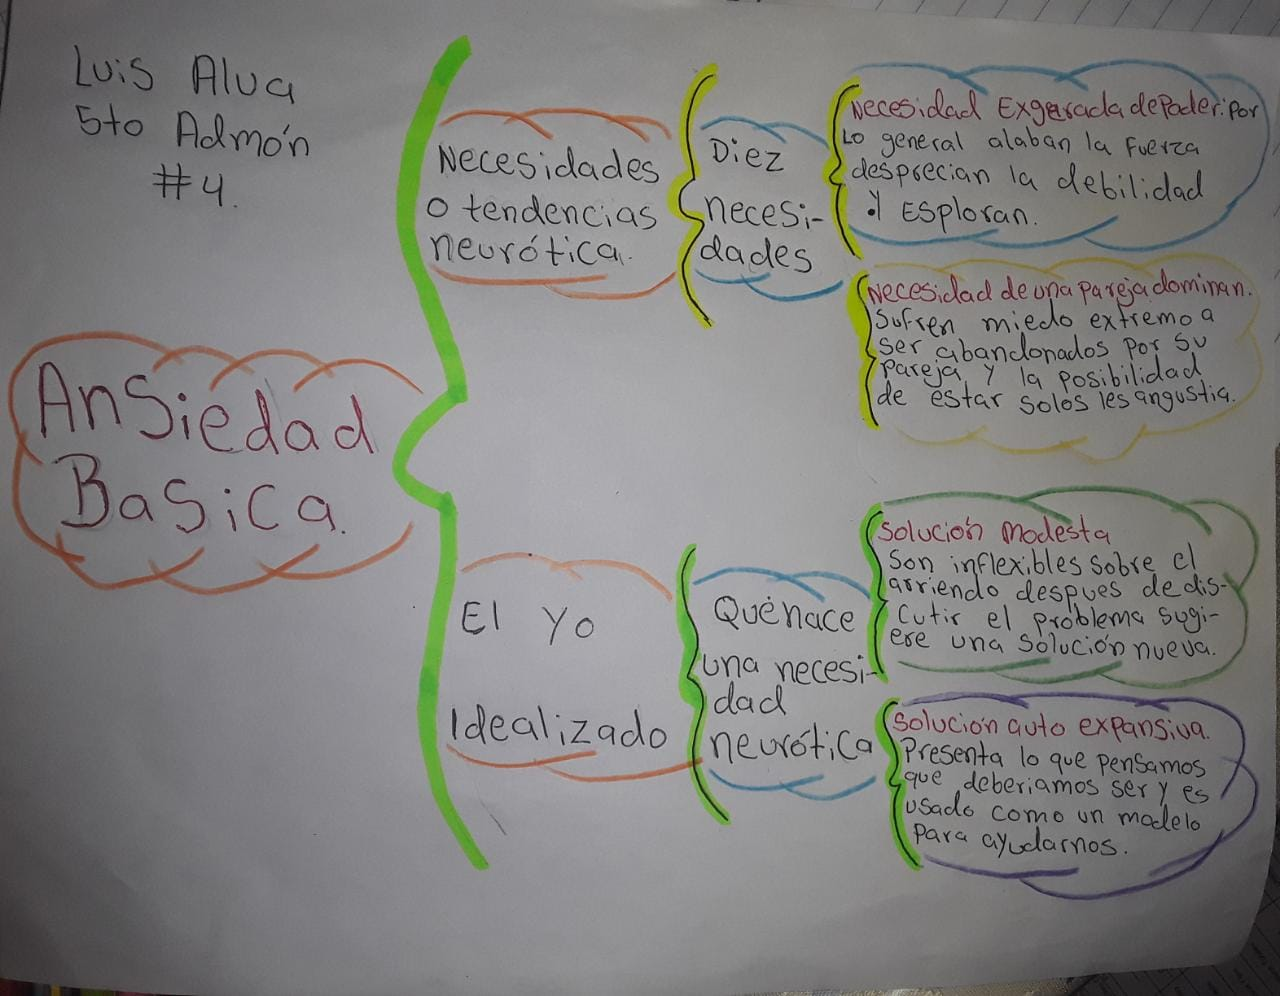 Luis Alva
5to Admón
#4.
Ansiedad
Basica.
Necesidades
o tendencias
neurótica.
Diez
necesi-
dades
Necesidad Exgerada de Poder: Por
Lo general alaban la fuerza
desprecian la debilidad
y Esploran.
Necesidad de una pareja dominan.
Sufren miedo extremo a
ser abandonados por su
pareja y la posibilidad
de estar solos les angustia.
El yo
Idealizado
Qué nace
una necesi-
dad
neurótica
Solución Modesta
Son inflexibles sobre el
arriendo despues de dis-
cutir el problema sugi-
ere una solución nueva.
Solución auto expansiva.
Presenta lo que pensamos
que deberiamos ser y es
usado como un modelo
para ayudarnos.